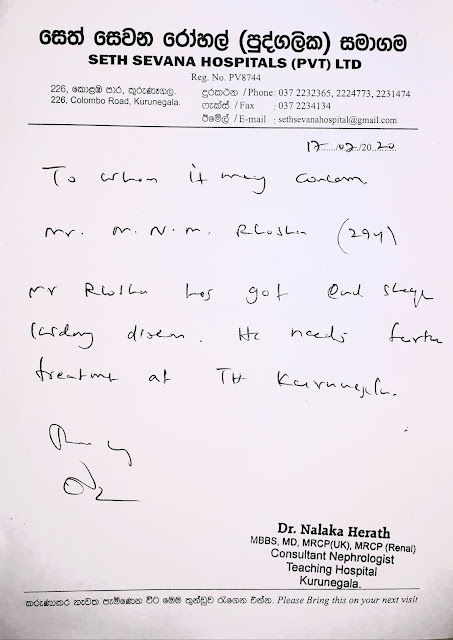 සෙත් සෙවන රෝහල් (පුද්ගලික) සමාගම
SETH SEVANA HOSPITALS (PVT) LTD
Reg. No. PV8744
226, කොළඹ පාර, කුරුණෑගල.
226, Colombo Road, Kurunegala.
දුරකථන / Phone : 037 2232365, 2224773, 2231474
ෆැක්ස් / Fax : 037 2234134
ඊමේල් / E-mail : sethsevanahospital@gmail.com
17/02/2020
To whom it may concern
Mr. M.N.M.
Mr has got End stage
disease. He needs further
treatment at TH Kurunegala.
Dr. Nalaka Herath
MBBS, MD, MRCP(UK), MRCP (Renal)
Consultant Nephrologist
Teaching Hospital
Kurunegala.
කරුණාකර නැවත පැමිණෙන විට මෙම තුන්ඩුව රැගෙන එන්න. Please Bring this on your next visit